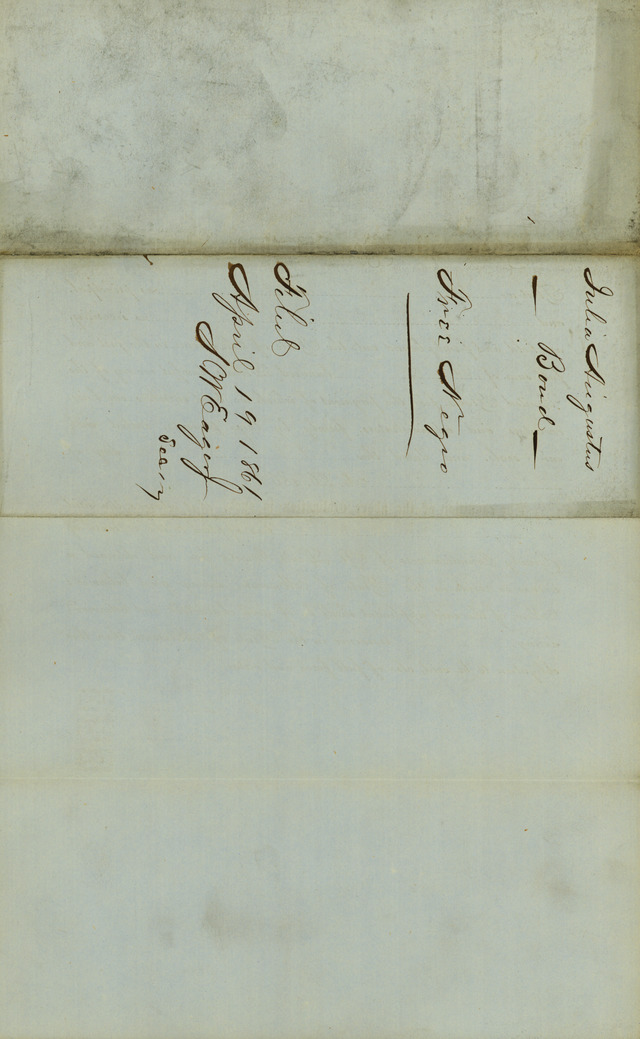 Julia Augustus
— Bond —
Free Negro
Filed
April 19 1861
S W Eager Jr